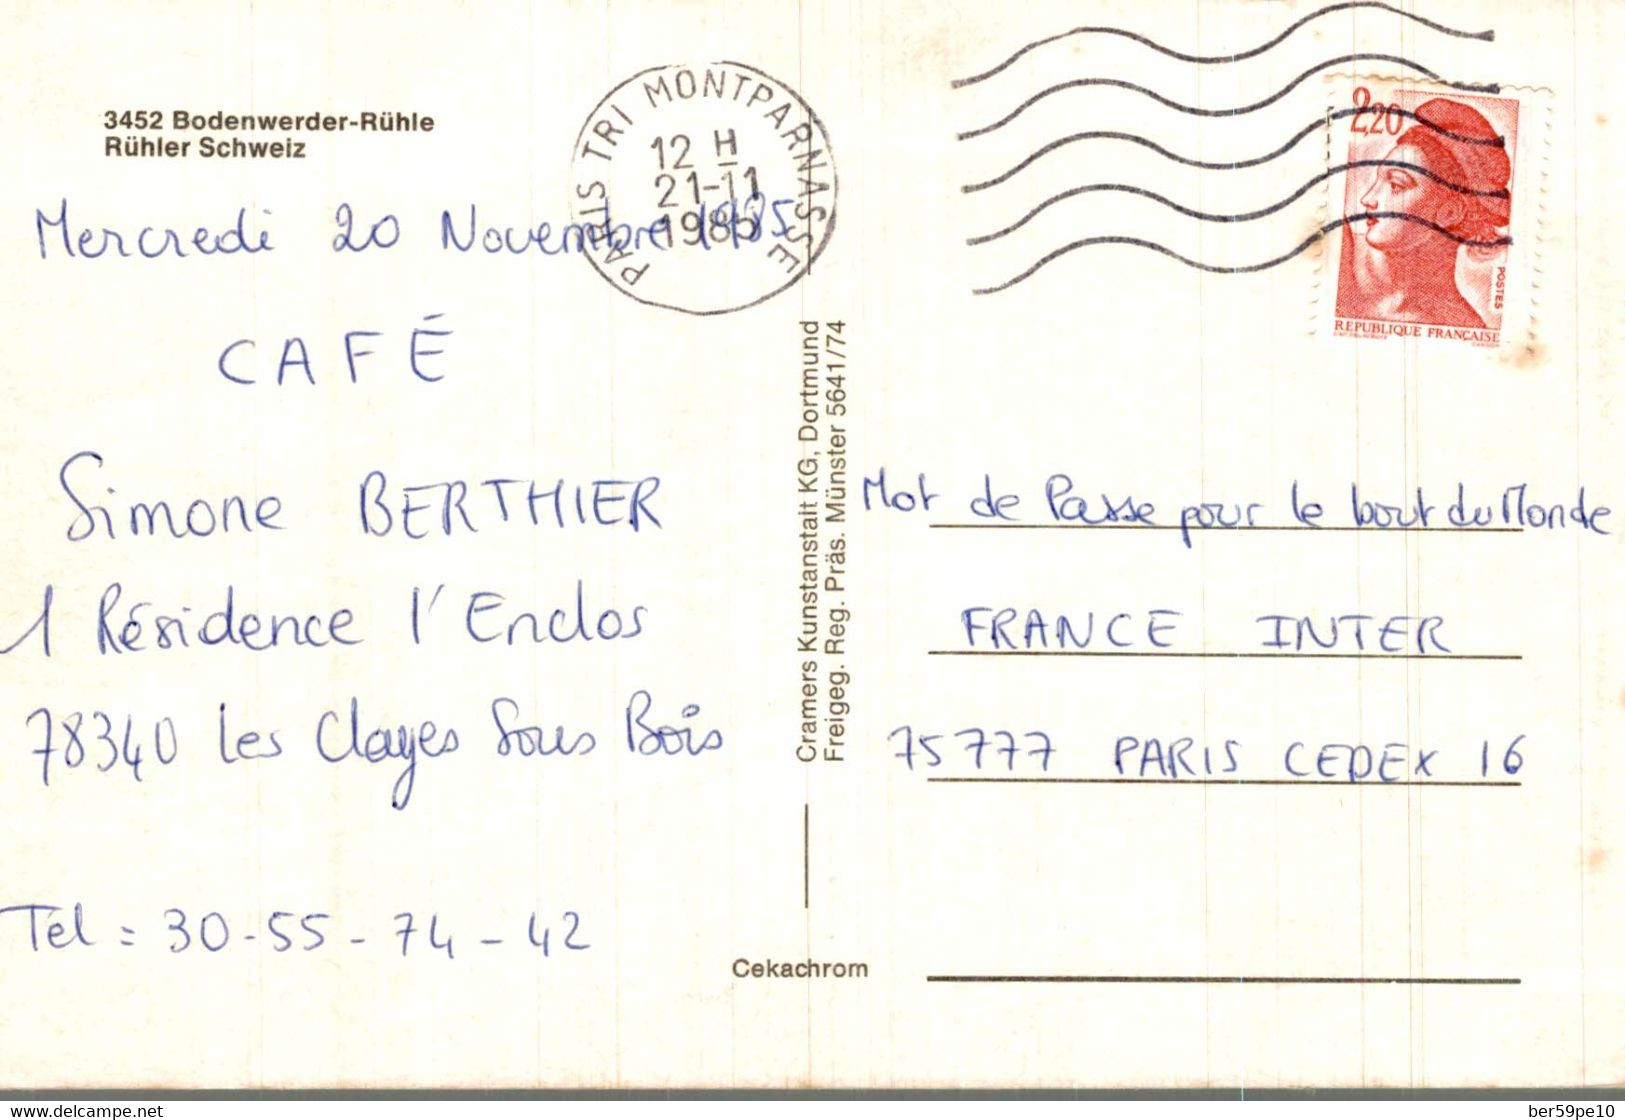 3452 Bodenwerder-Rühle
Rühler Schweiz
PARIS TRI MONTPARNASSE
12 H
21-11
1985
2,20
POSTES
REPUBLIQUE FRANÇAISE
Mercredi 20 Novembre 1985
CAFÉ
Simone BERTHIER
1 Résidence l'Enclos
78340 Les Clayes Sous Bois
Tél = 30-55-74-42
Cramers Kunstanstalt KG, Dortmund
Freigeg. Reg. Präs. Münster 5641/74
Cekachrom
Mot de Passe pour le bout du Monde
FRANCE INTER
75777 PARIS CEDEX 16
delcampe.net
ber59pe10